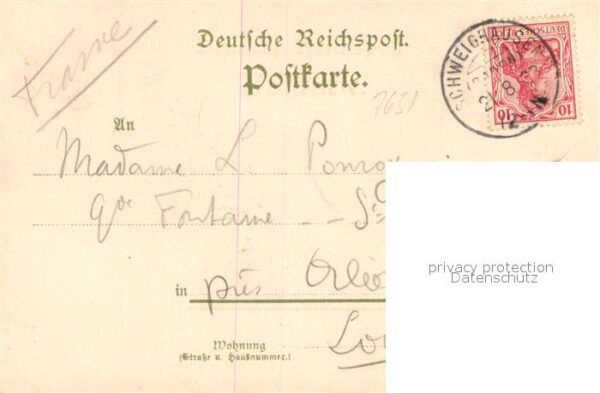 France
Deutsche Reichspost.
Postkarte.
7631
SCHWEIGHAUSEN
DEUTSCHES REICH
10 10
An
Madame L
Gde Fontaine - St
in près Orlé
Wohnung
(Straße u. Hausnummer.)
Loi
privacy protection
Datenschutz